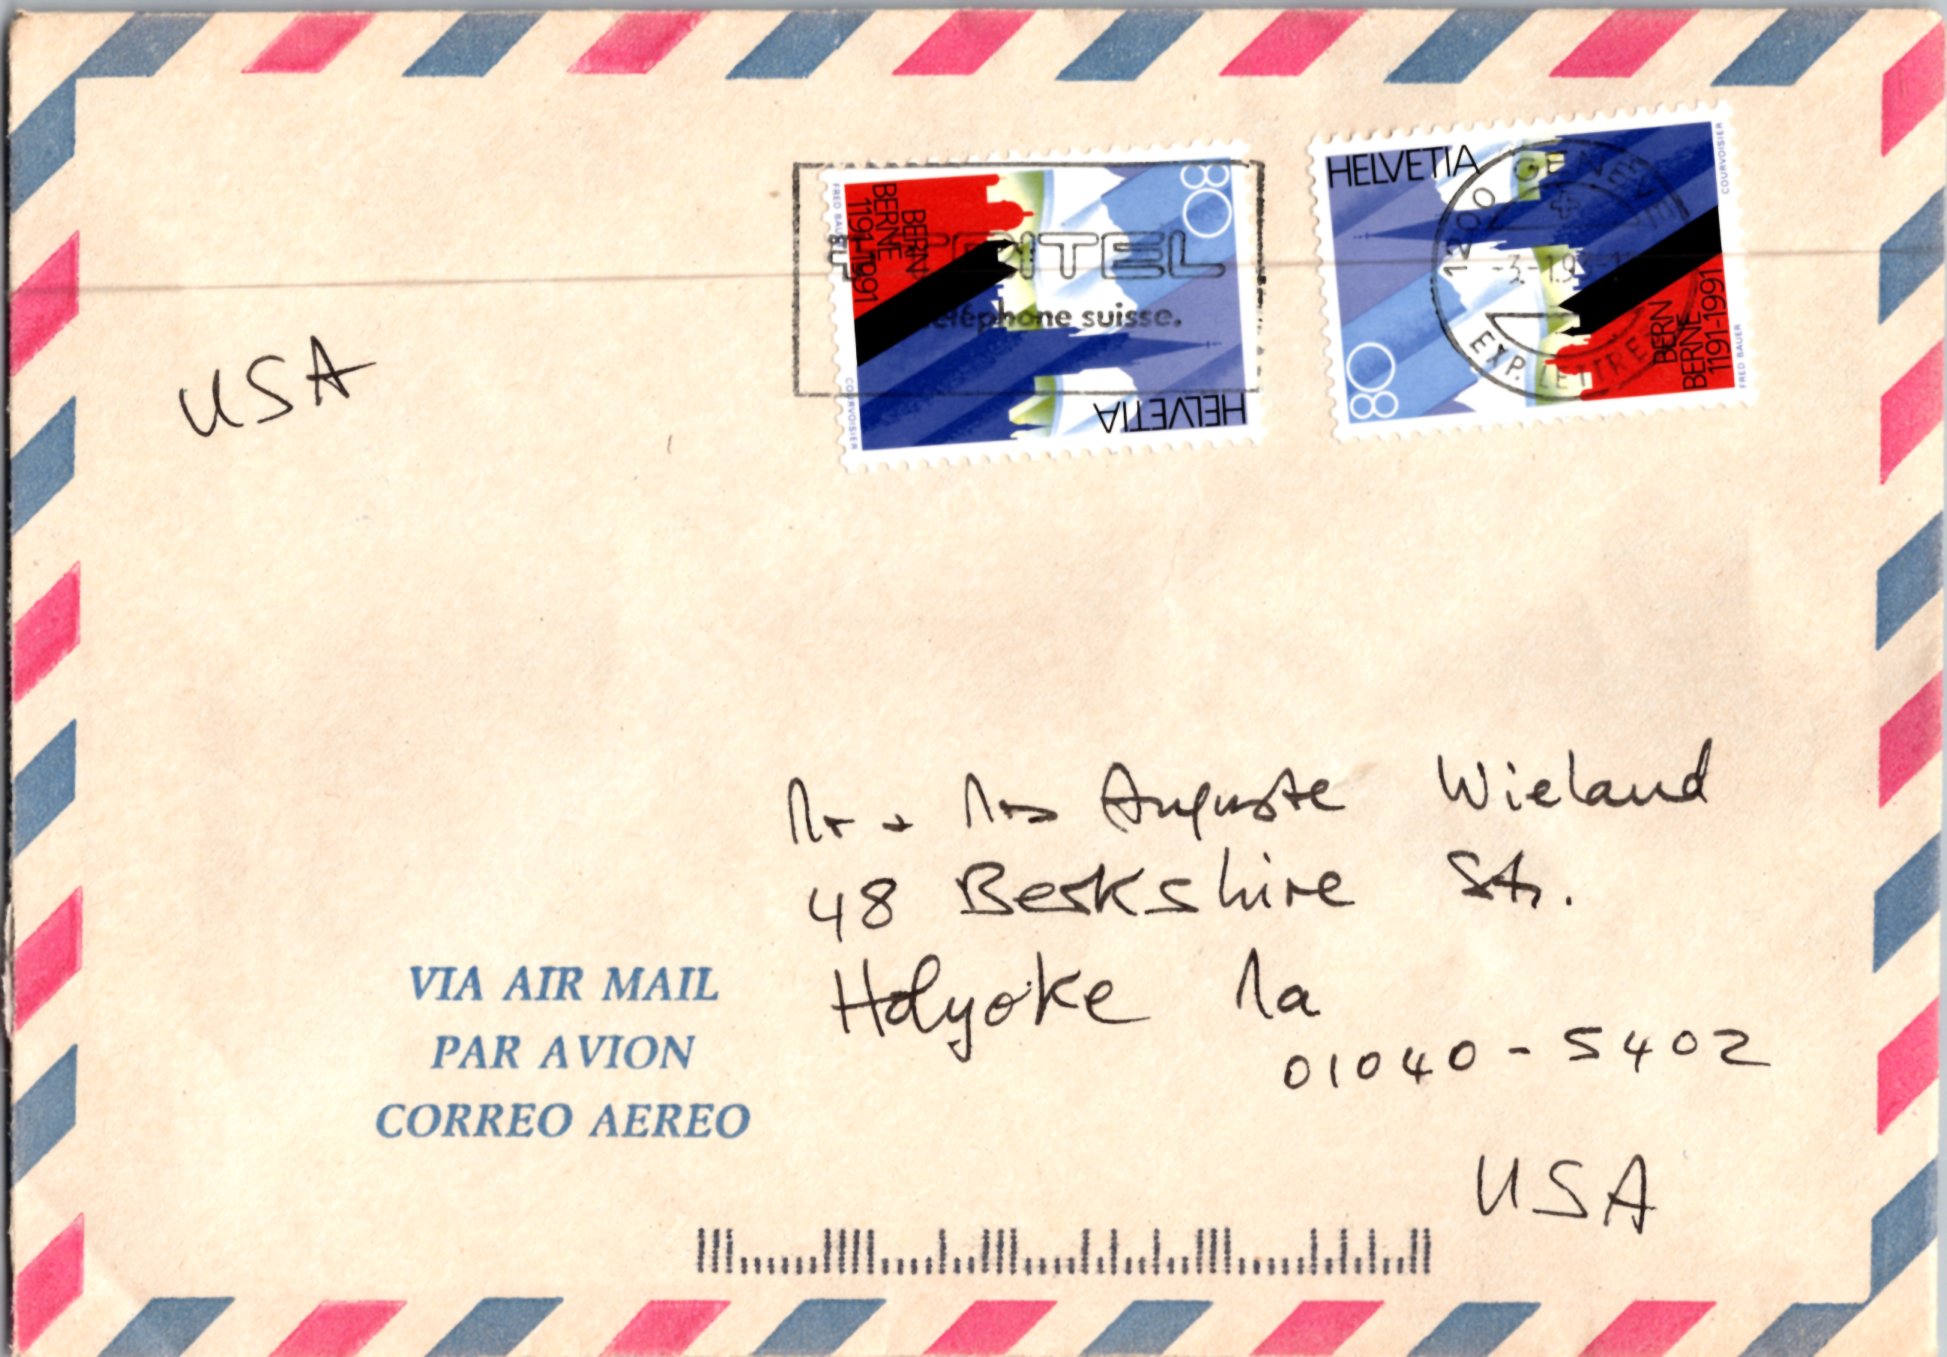 USA
HELVETIA
80
BERN
BERNE
1191-1991
FRED BAUER
COURVOISIER
téléphone suisse.
HELVETIA
80
BERN
BERNE
1191-1991
FRED BAUER
COURVOISIER
1200 GENÈVE
EXP. LETTRES
Mr + Mrs Auguste Wieland
48 Berkshire Str.
Holyoke Ma
01040-5402
USA
VIA AIR MAIL
PAR AVION
CORREO AEREO